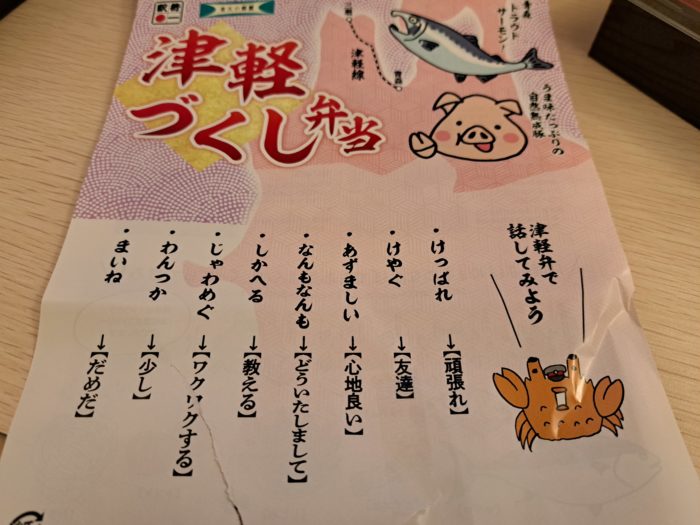 駅弁
津軽
づくし弁当
三厩
津軽線
青森
青森
トラウト
サーモン!
うま味たっぷりの
自然熟成豚
津軽弁で
話してみよう
・けっぱれ →【頑張れ】
・けやぐ →【友達】
・あずましい →【心地良い】
・なんもなんも →【どういたしまして】
・しかへる →【教える】
・じゃわめぐ →【ワクワクする】
・わんつか →【少し】
・まいね →【だめだ】